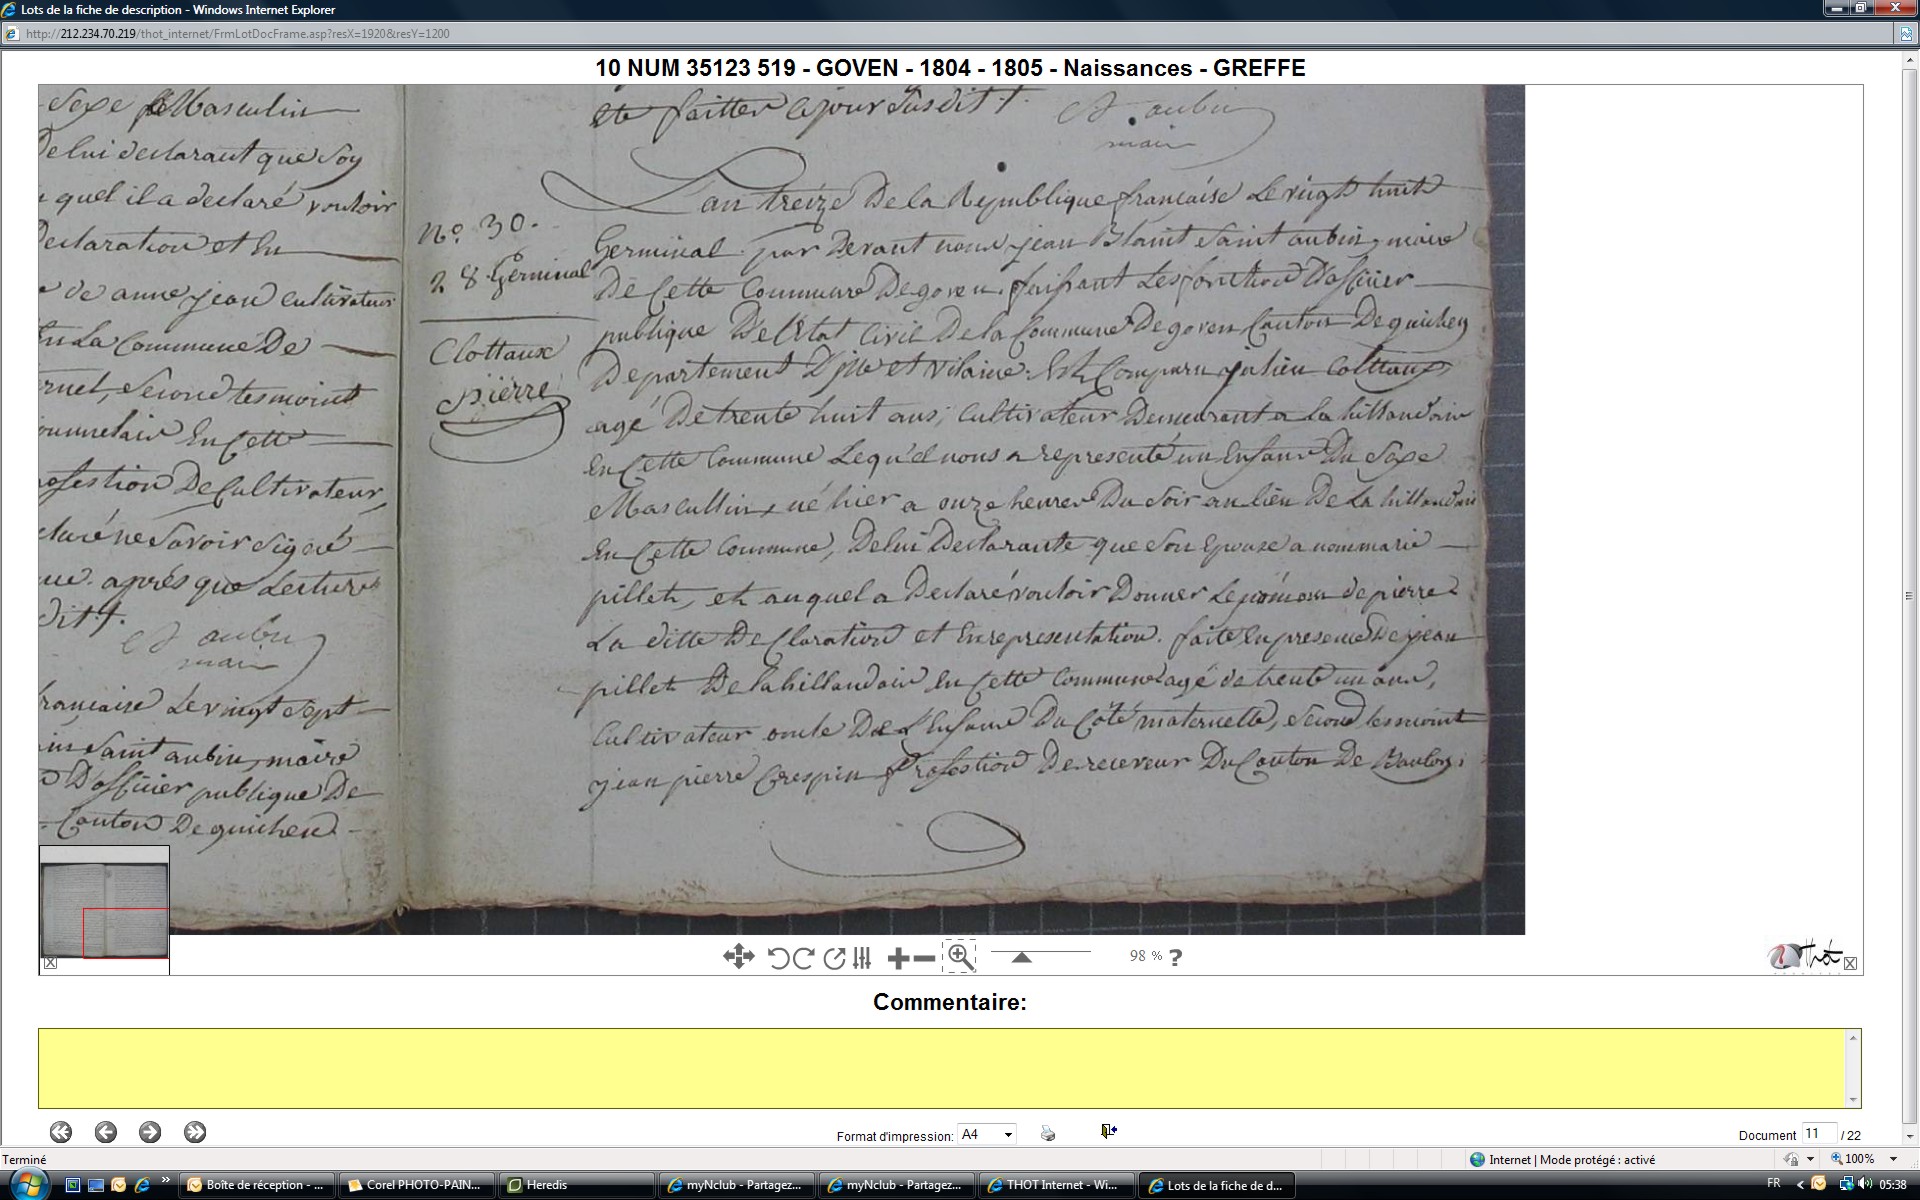 Lots de la fiche de description - Windows Internet Explorer
http://212.234.70.219/thot_internet/FrmLotDocFrame.asp?resX=1920&resY=1200
10 NUM 35123 519 - GOVEN - 1804 - 1805 - Naissances - GREFFE
Sexe Masculin
De lui déclarant que Son
quel il a declaré vouloir
Declaration et En
de anne jean cultivateur
En La Commune De
ruel, Second tesmoint
En Cette
profestion De Cultivateur,
claré ne Savoir Signé
après que Lecture
dit.
St aubin
mair
française Le vingt Sept
Saint aubin, maire
D'officier publique De
Canton De guichen
ete faitter le jour Susdit.
St aubin
mair
N°. 30.
28 Germinal
Clottaux
pierre
L'an treize De la Republique française Le vingt huit
Germinal par Devant nous jean Saint aubin, maire
De Cette Commune De goven, faisant Les fonction D'officier
publique De l'Etat Civil De la Commune De goven Canton De guichen
Departement D'ille et vilaine. Est Comparu julien Colttaux
agé De trente huit ans, Cultivateur Demeurant a La hillandais
En Cette Commune Lequel nous a representé un Enfant Du Sexe
Mascullin, né hier a onze heures Du Soir au lieu De La hillandais
En Cette Commune, De lui Declarante que Son Epouse a nom marie
pillet, et auquel a Declaré vouloir Donner Le prénom de pierre
La ditte De Claration et En representation. faite En presence De jean
pillet De la hillandais En Cette Commune agé de trente un ans,
Cultivateur oncle De L'Enfant Du Côté maternelle, Second tesmoint
jean pierre Crespin profestion De receveur Du Canton De Baulon,
98 % ?
Thot
Commentaire:
Format d'impression: A4
Document 11 / 22
Terminé
Internet | Mode protégé : activé
100%
Boîte de réception - ...
Corel PHOTO-PAIN...
Heredis
myNclub - Partagez...
myNclub - Partagez...
THOT Internet - Wi...
Lots de la fiche de d...
FR
05:38